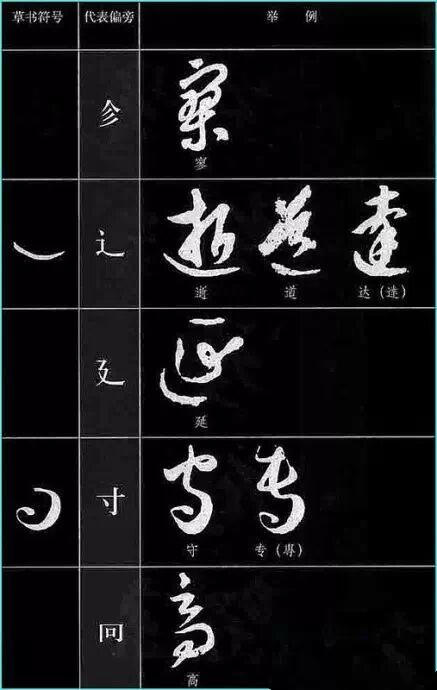 草书符号 代表偏旁 举 例
寥
辶
逝 道 达(達)
廴
延
寸
守 专(專)
高